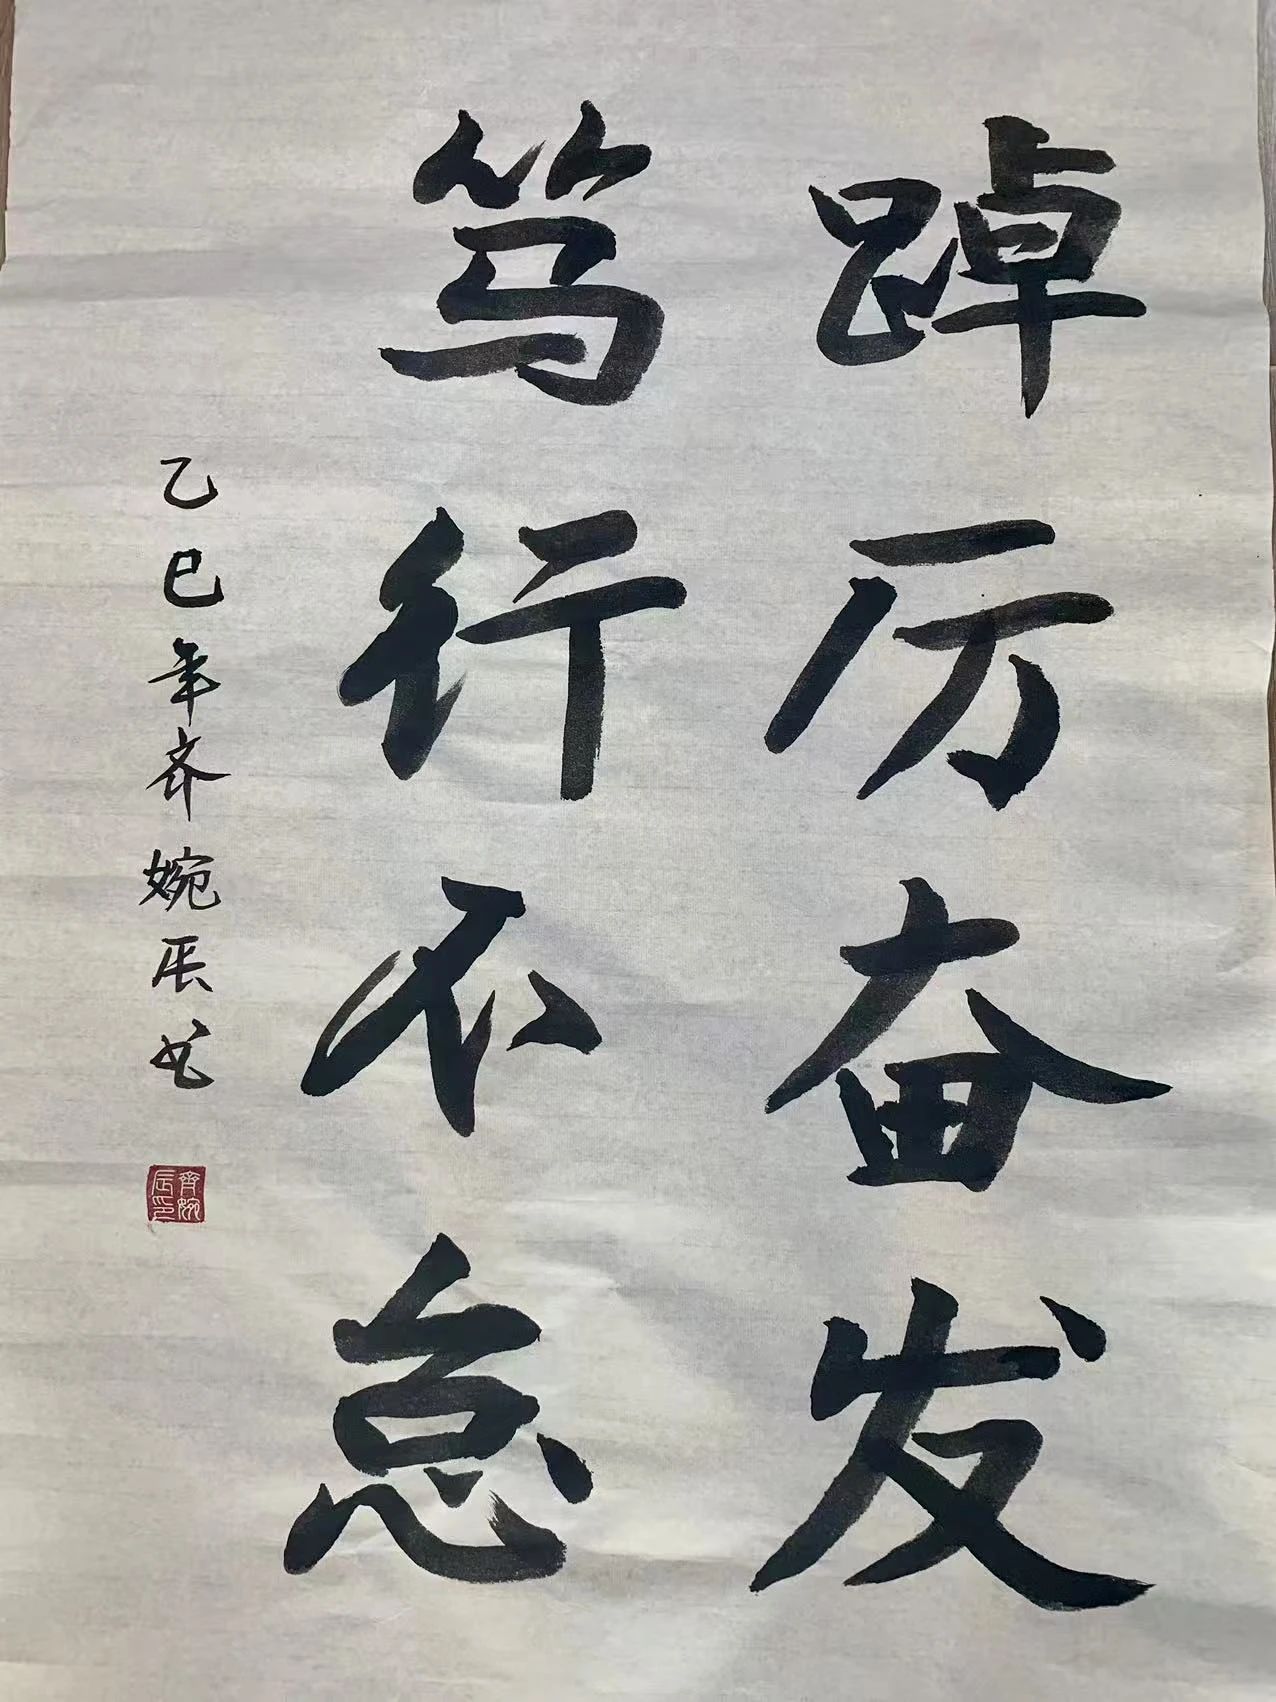 踔厉奋发
笃行不怠
乙巳年齐婉辰书
齐婉辰印